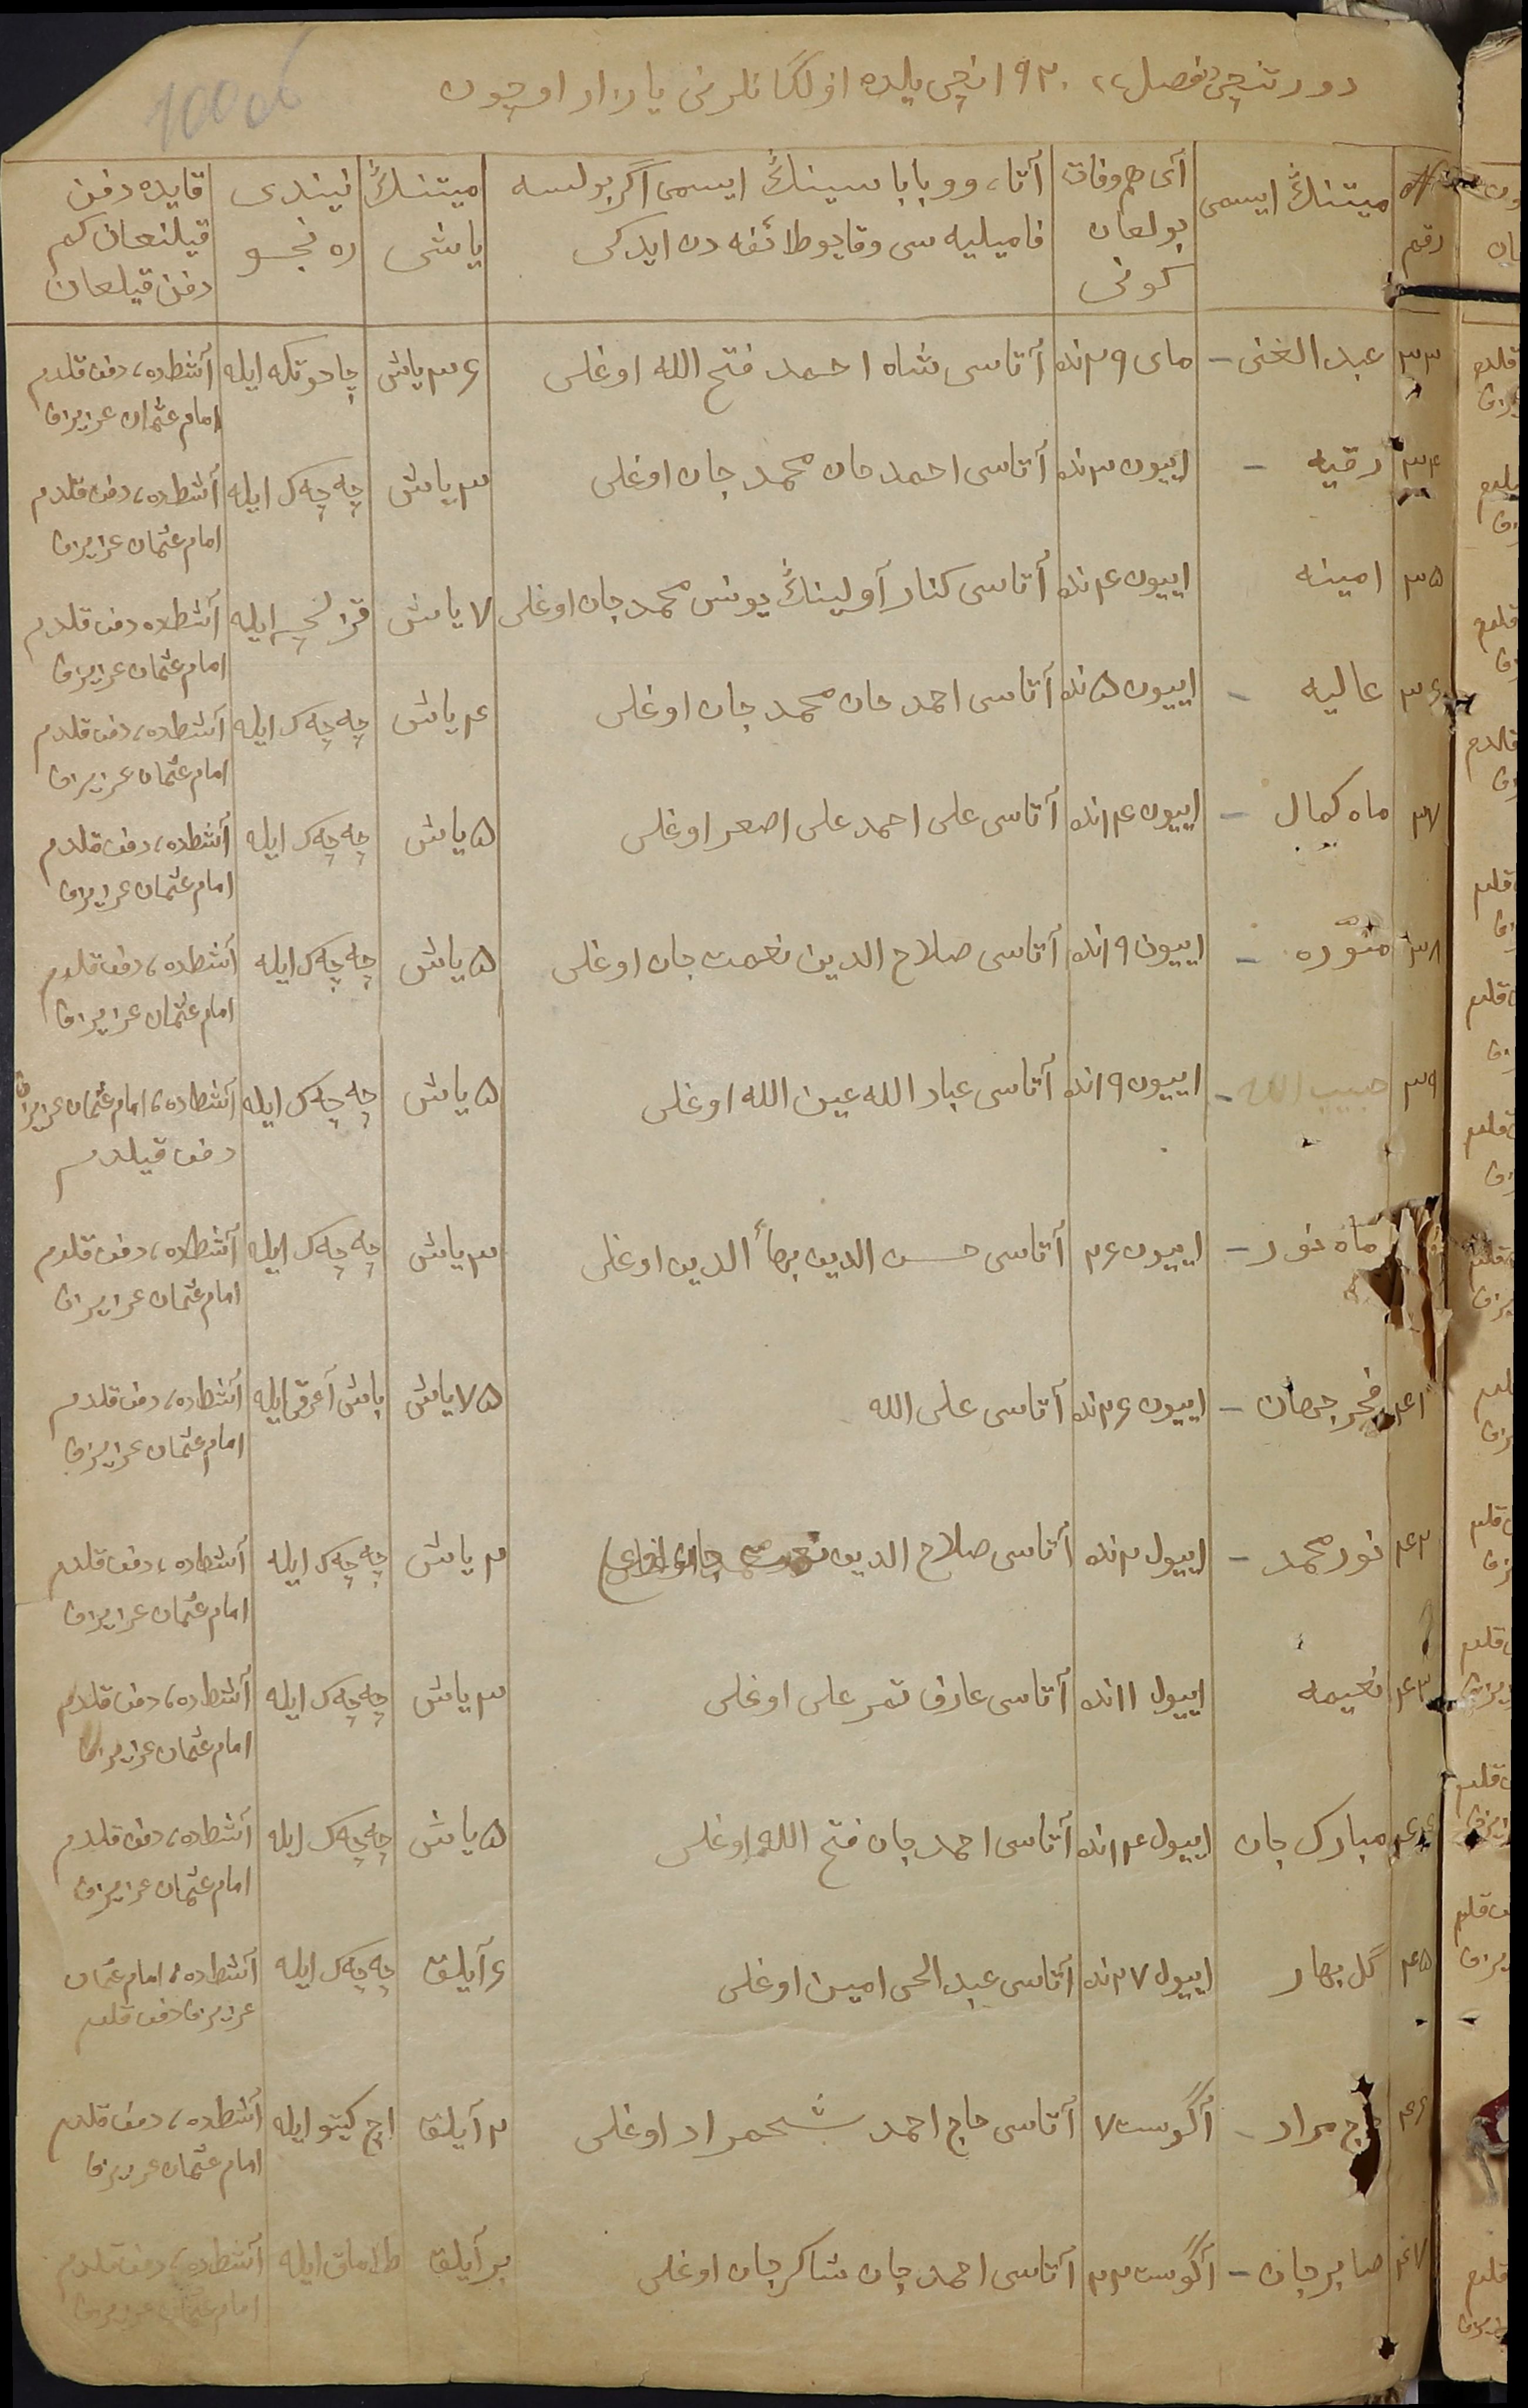 دورتنچی فصل، ۱۹۲۰ انچی یلده اولگانلرنی یازار اوچون
رقم
میتنڭ ایسمی
آی هم وفات
بولعان
کونی
آتا، وو باباسینڭ ایسمی اگر بولسه
فامیلیه سی وقایو طائفه دن ایدکی
میتنڭ
یاشی
نیندی
ره نجو
قایده دفن
قیلنعان کم
دفن قیلعان
۳۳ عبد الغنی – مای ۲۹ نده آتاسی شاه احمد فتح الله اوغلی ۳۶ یاش چاحوتکه ایله آشطده، دفن قلدم
امام عثمان عزیزاف
۳۴ رقیه – اییون ۳ نده آتاسی احمد جان محمد جان اوغلی ۳ یاش چه چه ک ایله آشطده، دفن قلدم
امام عثمان عزیزاف
۳۵ امینه اییون ۴ نده آتاسی کنار آولینڭ یونس محمد جان اوغلی ۷ یاش قزلچه ایله آشطده دفن قلدم
امام عثمان عزیزاف
۳۶ عالیه – اییون ۵ نده آتاسی احمد جان محمد جان اوغلی ۴ یاش چه چه ک ایله آشطده، دفن قلدم
امام عثمان عزیزاف
۳۷ ماه کمال – اییون ۱۴ نده آتاسی علی احمد علی اصعر اوغلی ۵ یاش چه چه ک ایله آشطده، دفن قلدم
امام عثمان عزیزاف
۳۸ منوّره – اییون ۱۹ نده آتاسی صلاح الدین نعمت جان اوغلی ۵ یاش چه چه ک ایله آشطده، دفن قلدم
امام عثمان عزیزاف
۳۹ حبیب الله – اییون ۱۹ نده آتاسی عباد الله عین الله اوغلی ۵ یاش چه چه ک ایله آشطده، امام عثمان عزیزاف
دفن قیلدم
ماه نور – اییون ۲۶ آتاسی حسن الدین بهأ الدین اوغلی ۳ یاش چه چه ک ایله آشطده، دفن قلدم
امام عثمان عزیزاف
۴۱ فخر جهان – اییون ۲۶ نده آتاسی علی الله ۷۵ یاش باش آعرق ایله آشطده، دفن قلدم
امام عثمان عزیزاف
۴۲ نور محمد – اییول ۲ نده آتاسی صلاح الدین ۲ یاش چه چه ک ایله آشطده، دفن قلدم
امام عثمان عزیزاف
۴۳ نعیمه اییول ۱۱ نده آتاسی عارف تمر علی اوغلی ۳ یاش چه چه ک ایله آشطده، دفن قلدم
امام عثمان عزیزاف
۴۴ مبارک جان اییول ۱۴ نده آتاسی احمد جان فتح الله اوغلی ۵ یاش چه چه ک ایله آشطده، دفن قلدم
امام عثمان عزیزاف
۴۵ گل بهار اییول ۲۷ نده آتاسی عبد الحی امین اوغلی ۶ آیلق چه چه ک ایله آشطده، امام عثمان
عزیزاف دفن قلدم
۴۶ مراد – آگوست ۷ آتاسی حاج احمد شحمراد اوغلی ۲ آیلق اچ کیتو ایله آشطده، دفن قلدم
امام عثمان عزیزاف
۴۷ صابر جان – آگوست ۲۲ آتاسی احمد جان شاکر جان اوغلی بر آیلق طاماق ایله آشطده، دفن قلدم
امام عثمان عزیزاف